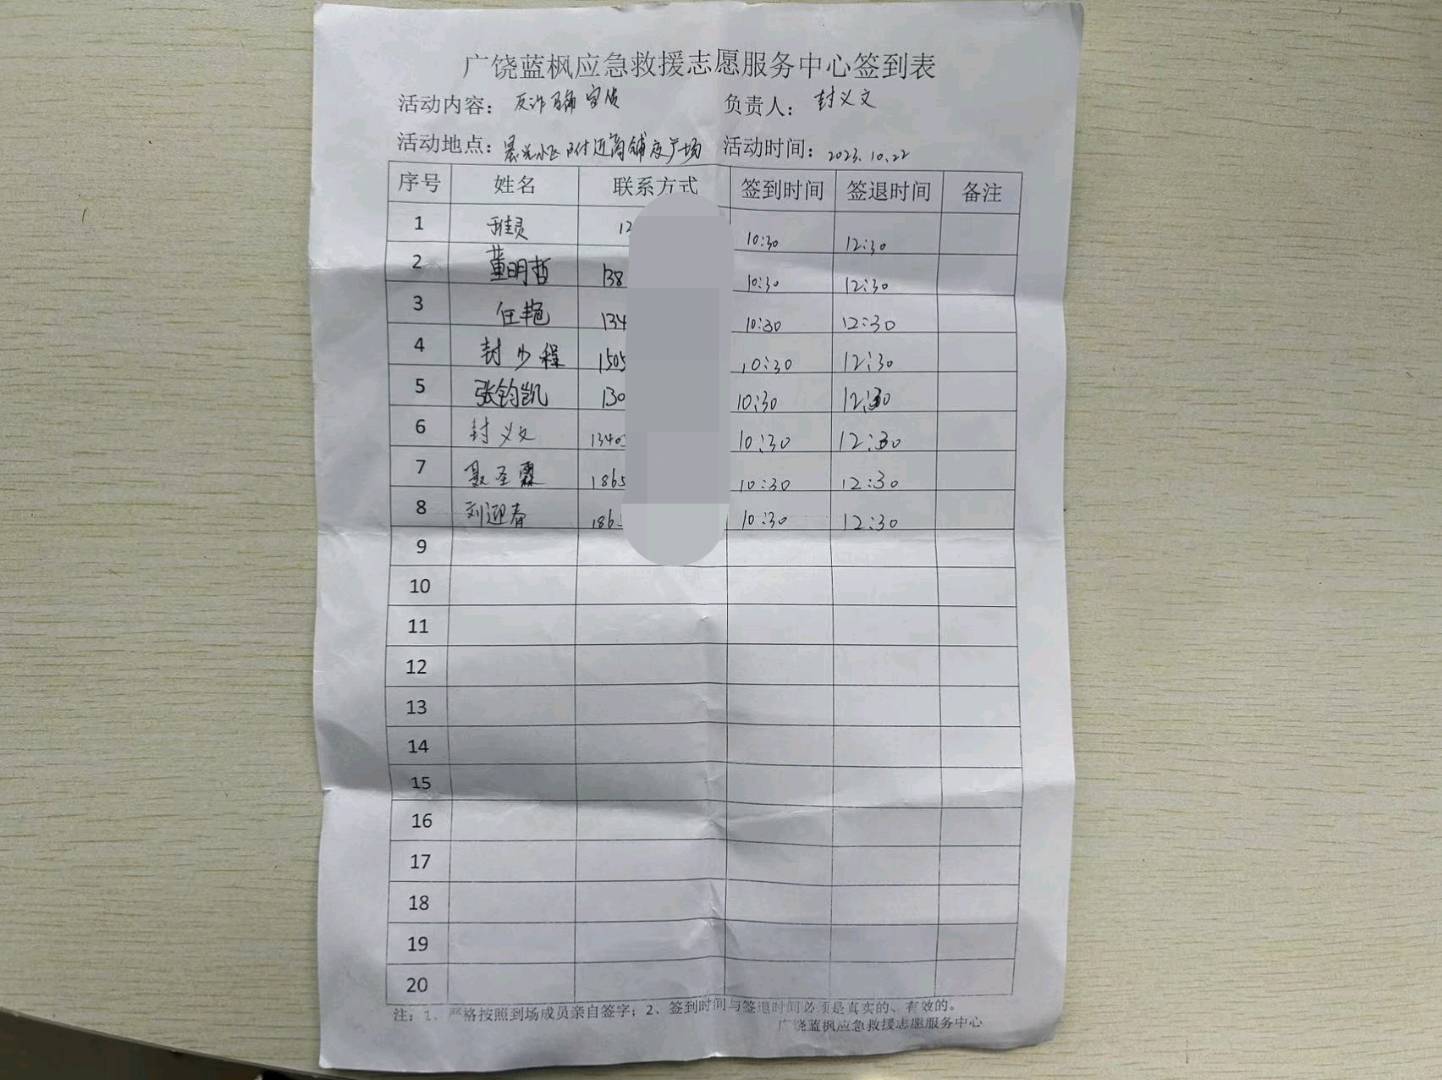 广饶蓝枫应急救援志愿服务中心签到表
活动内容： 反诈 负责人： 封义文
活动地点： 附近商铺及广场 活动时间： 2023.10.22
序号 姓名 联系方式 签到时间 签退时间 备注
1 12 10:30 12:30
2 董明哲 138 10:30 12:30
3 任艳 134 10:30 12:30
4 封少程 1505 10:30 12:30
5 张钧凯 130 10:30 12:30
6 封义文 1340 10:30 12:30
7 聂圣霖 1865 10:30 12:30
8 刘迎春 186 10:30 12:30
9
10
11
12
13
14
15
16
17
18
19
20
注：1、严格按照到场成员亲自签字；2、签到时间与签退时间必须是真实的、有效的。
广饶蓝枫应急救援志愿服务中心